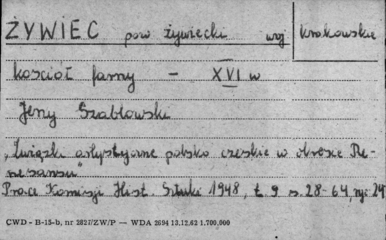 ŻYWIEC pow żywiecki woj krakowskie
kościół farny – XVI w
Jerzy Szablowski
„Związki artystyczne polsko czeskie w okresie Re-
nesansu"
Prace Komisji Hist. Sztuki 1948, t. 9 s. 28-64, ryc 24
CWD - B-15-b, nr 2827/ZW/P — WDA 2694 13.12.62 1.700.000